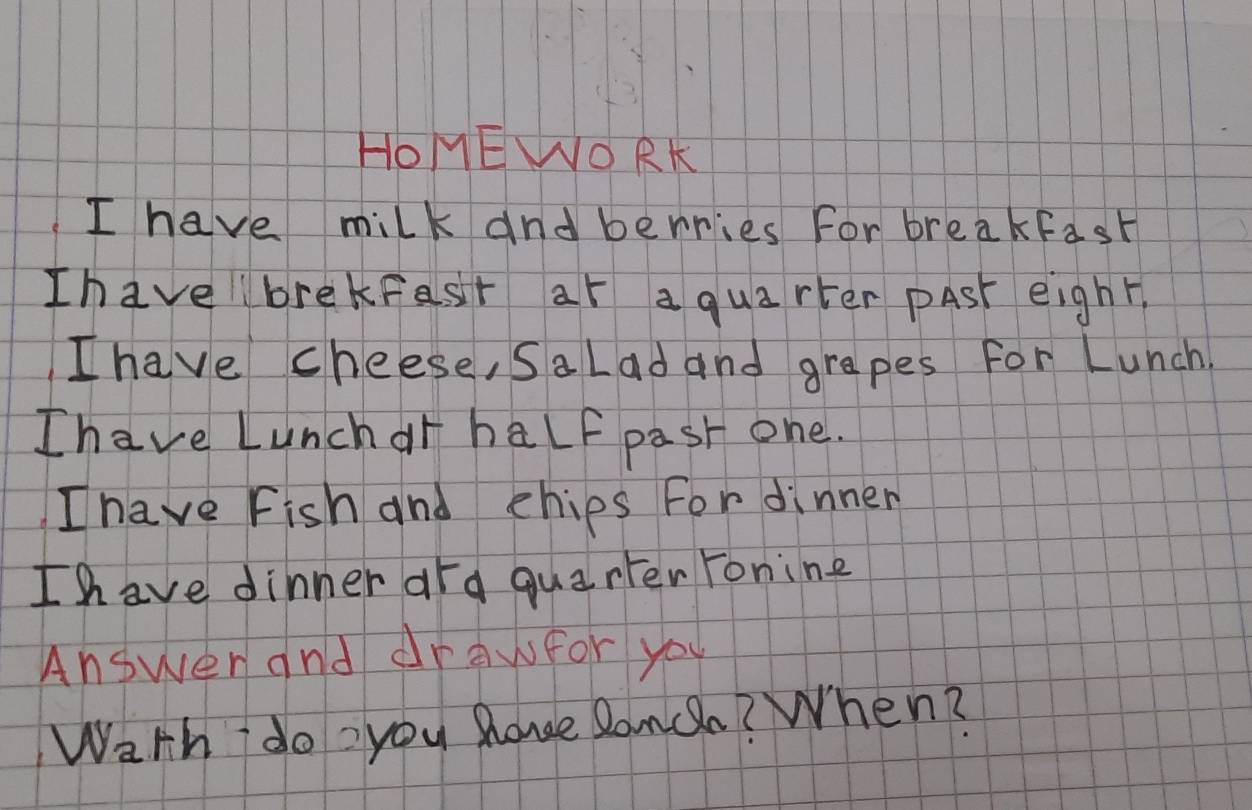 HOMEWORK
I have milk and berries for breakfast
I have brekfast at a quarter past eight.
I have cheese, salad and grapes for lunch.
I have lunch at half past one.
I have fish and chips for dinner
I have dinner at a quarter to nine
Answer and draw for you
Wath do you have lanch? When?